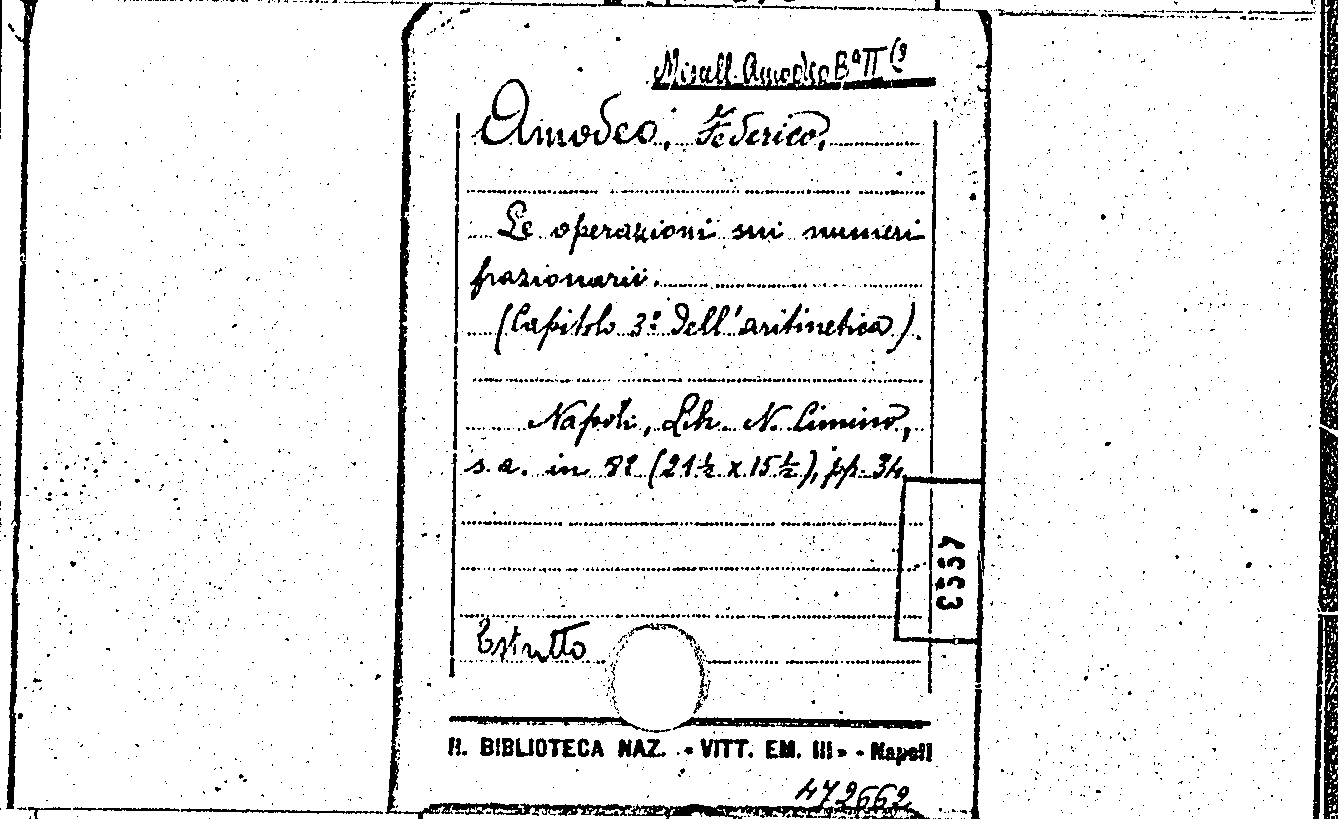 Miscell. Amodeo Bª II (9
Amodeo, Federico.
Le operazioni sui numeri
frazionarii.
(Capitolo 3º dell'aritmetica).
Napoli, Lib. N. Cimino,
s.a. in 8º (21½ x 15½), pp. 34
4553
Estratto
R. BIBLIOTECA NAZ. «VITT. EM. III» - Napoli
472662